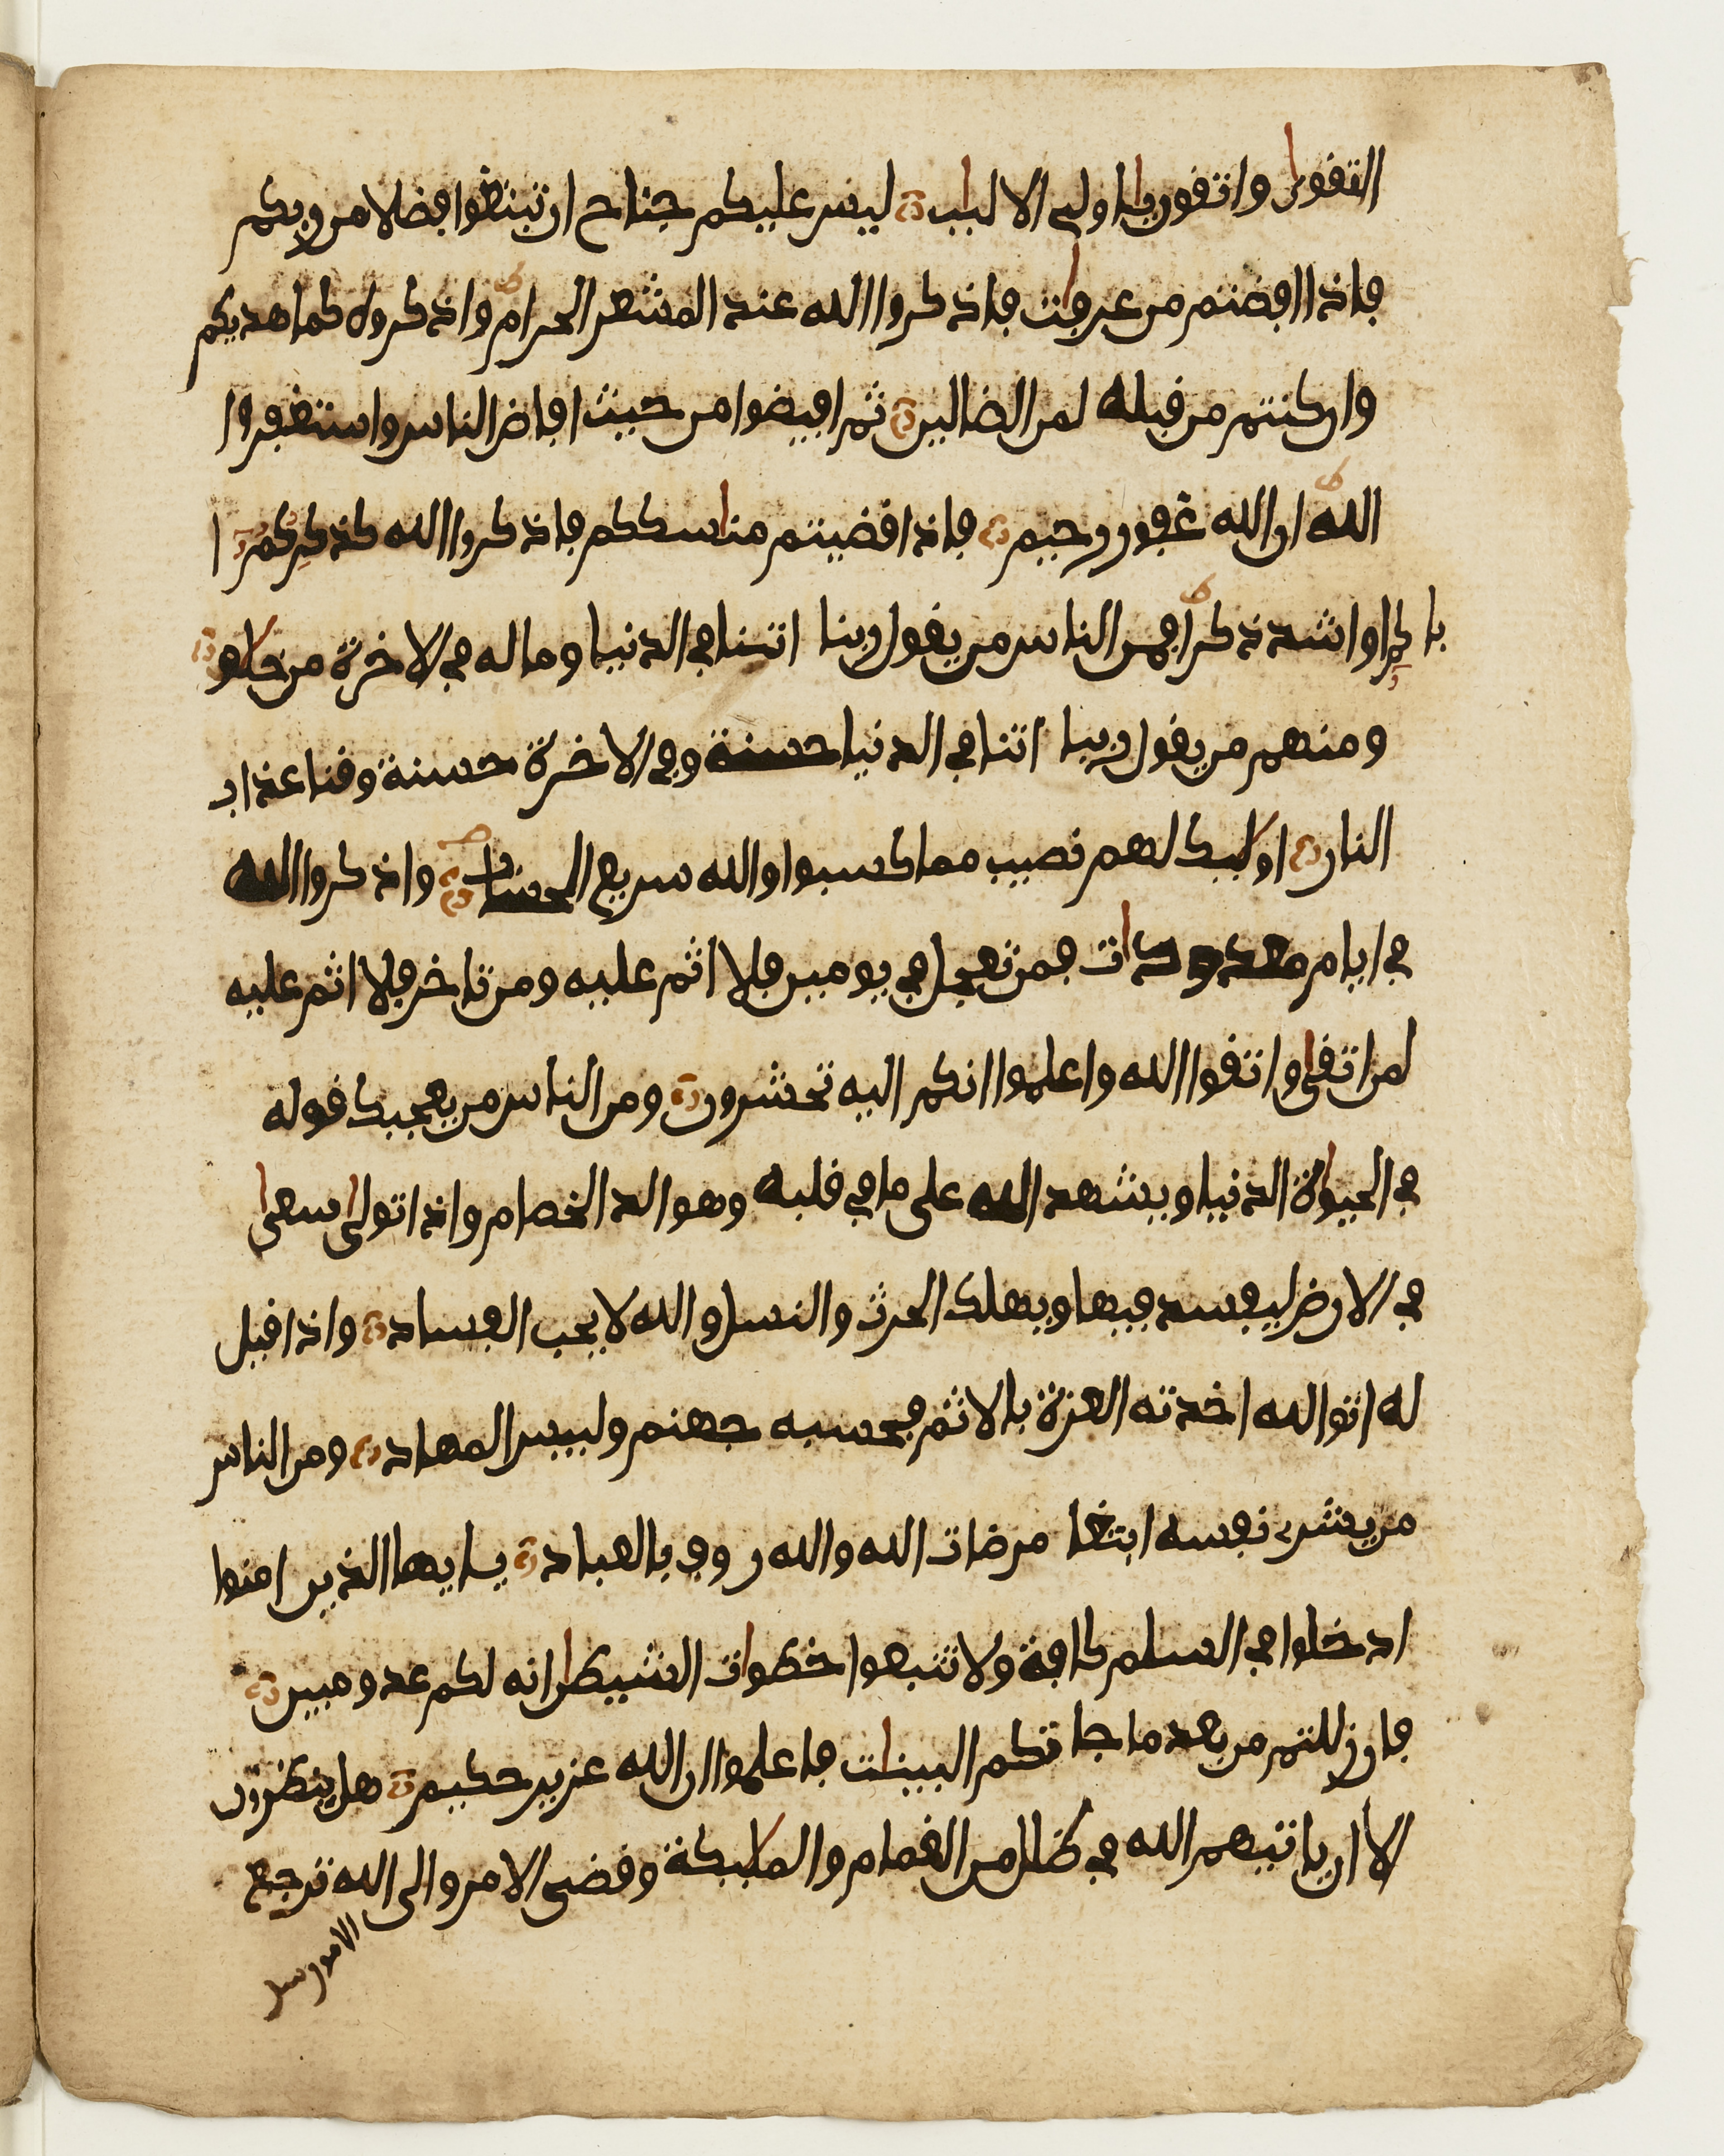 التقوى واتقون ياولي الالبب ليس عليكم جناح ان تبتغوا فضلا من ربكم
فاذا افضتم من عرفت فاذكروا الله عند المشعر الحرام واذكروه كما هديكم
وان كنتم من قبله لمن الضالين ثم افيضوا من حيث افاض الناس واستغفروا
الله ان الله غفور رحيم فاذا قضيتم مناسككم فاذكروا الله كذكركم ا
باكم او اشد ذكرا فمن الناس من يقول ربنا اتنا في الدنيا وما له في الاخرة من خلو
ومنهم من يقول ربنا اتنا في الدنيا حسنة وفي الاخرة حسنة وقنا عذاب
النار اوليك لهم نصيب مما كسبوا والله سريع الحساب واذكروا الله
في ايام معدودات فمن تعجل في يومين فلا اثم عليه ومن تاخر فلا اثم عليه
لمن اتقى واتقوا الله واعلموا انكم اليه تحشرون ومن الناس من يعجبك قوله
في الحيوة الدنيا ويشهد الله على ما في قلبه وهو الد الخصام واذا تولى سعى
في الارض ليفسد فيها ويهلك الحرث والنسل والله لا يحب الفساد واذا قيل
له اتو الله اخدته العزة بالاثم فحسبه جهنم ولبيس المهاد ومن الناس
من يشر نفسه ابتغا مرضات الله والله روف بالعباد يايها الذين امنوا
ادخلوا في السلم كافة ولا تتبعوا خطوات الشيطن انه لكم عدو مبين
فان زللتم من بعد ما جا تكم البينات فاعلموا ان الله عزيز حكيم هل ينظرون
الا ان ياتيهم الله في ظلل من الغمام والمليكة وقضي الامر والى الله ترجع
الامور سل